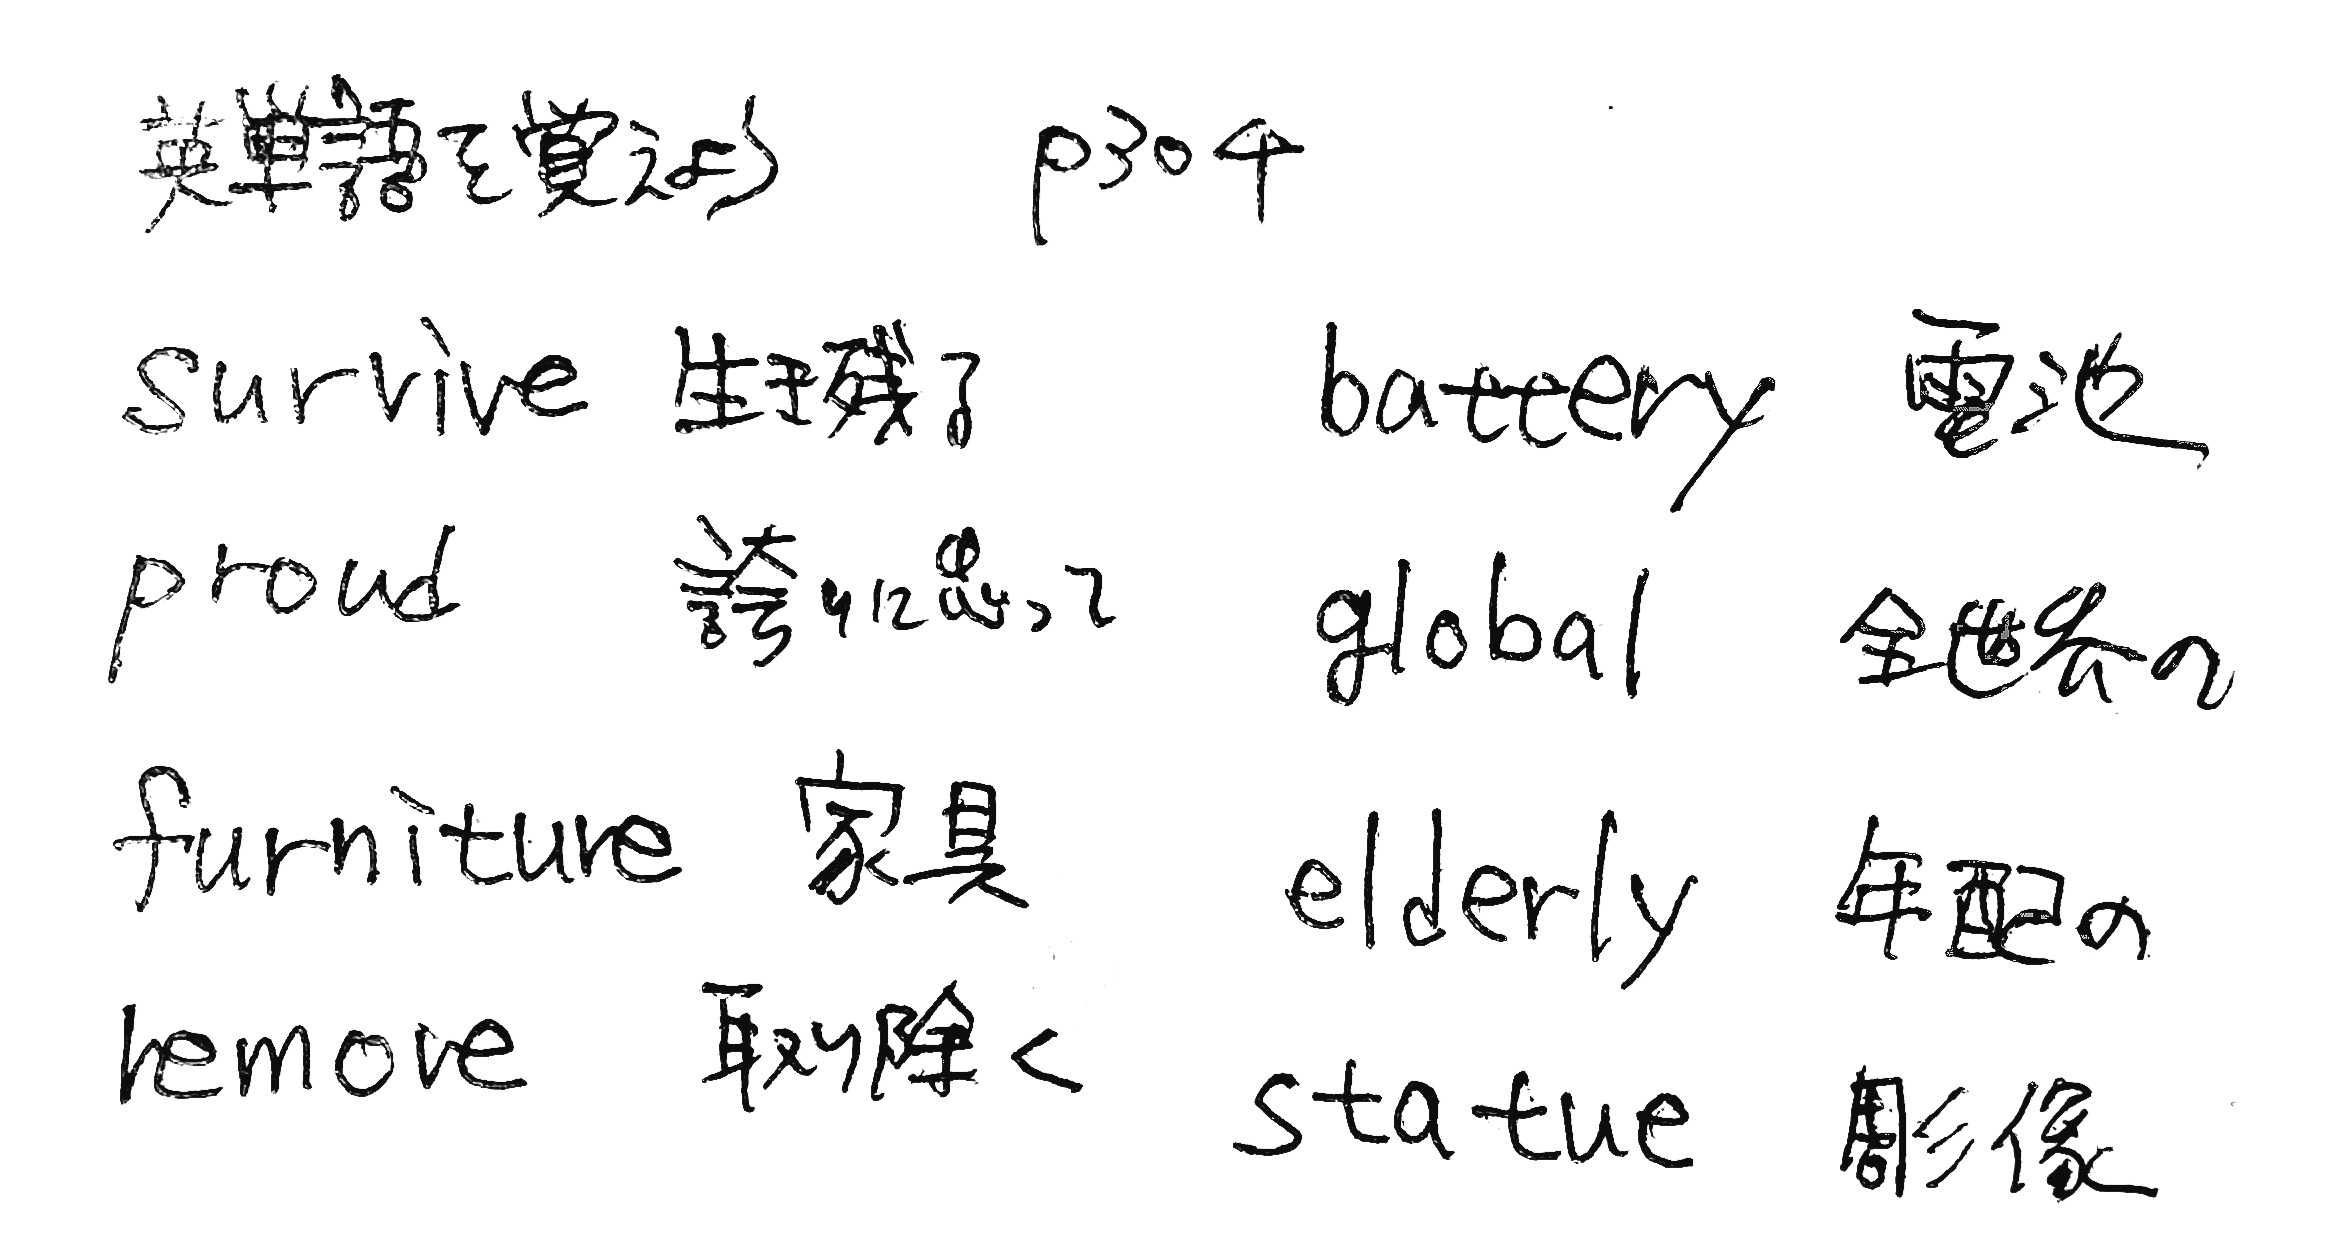 英単語を覚えよう p304
survive 生き残る battery 電池
proud 誇りに思って global 全世界の
furniture 家具 elderly 年配の
remove 取り除く statue 彫像